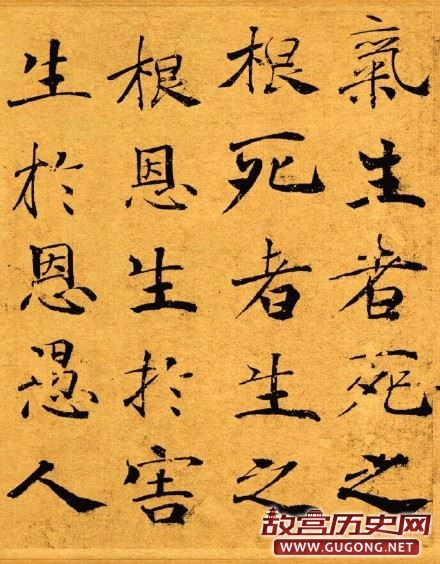 氣生者死之
根死者生之
根恩生於害
生於恩愚人
故宫历史网
WWW.GUGONG.NET